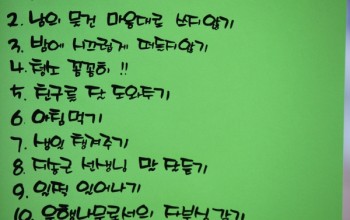 2. 남의 물건 마음대로 쓰지않기
3. 밤에 시끄럽게 떠들지않기
4. 청소 꼼꼼히 !!
5. 친구를 도와주기
6. 아침먹기
7. 생일 챙겨주기
8. 지송근 선생님 말 잘듣기
9. 일찍 일어나기
10. 은행나무로서의 자부심 갖기